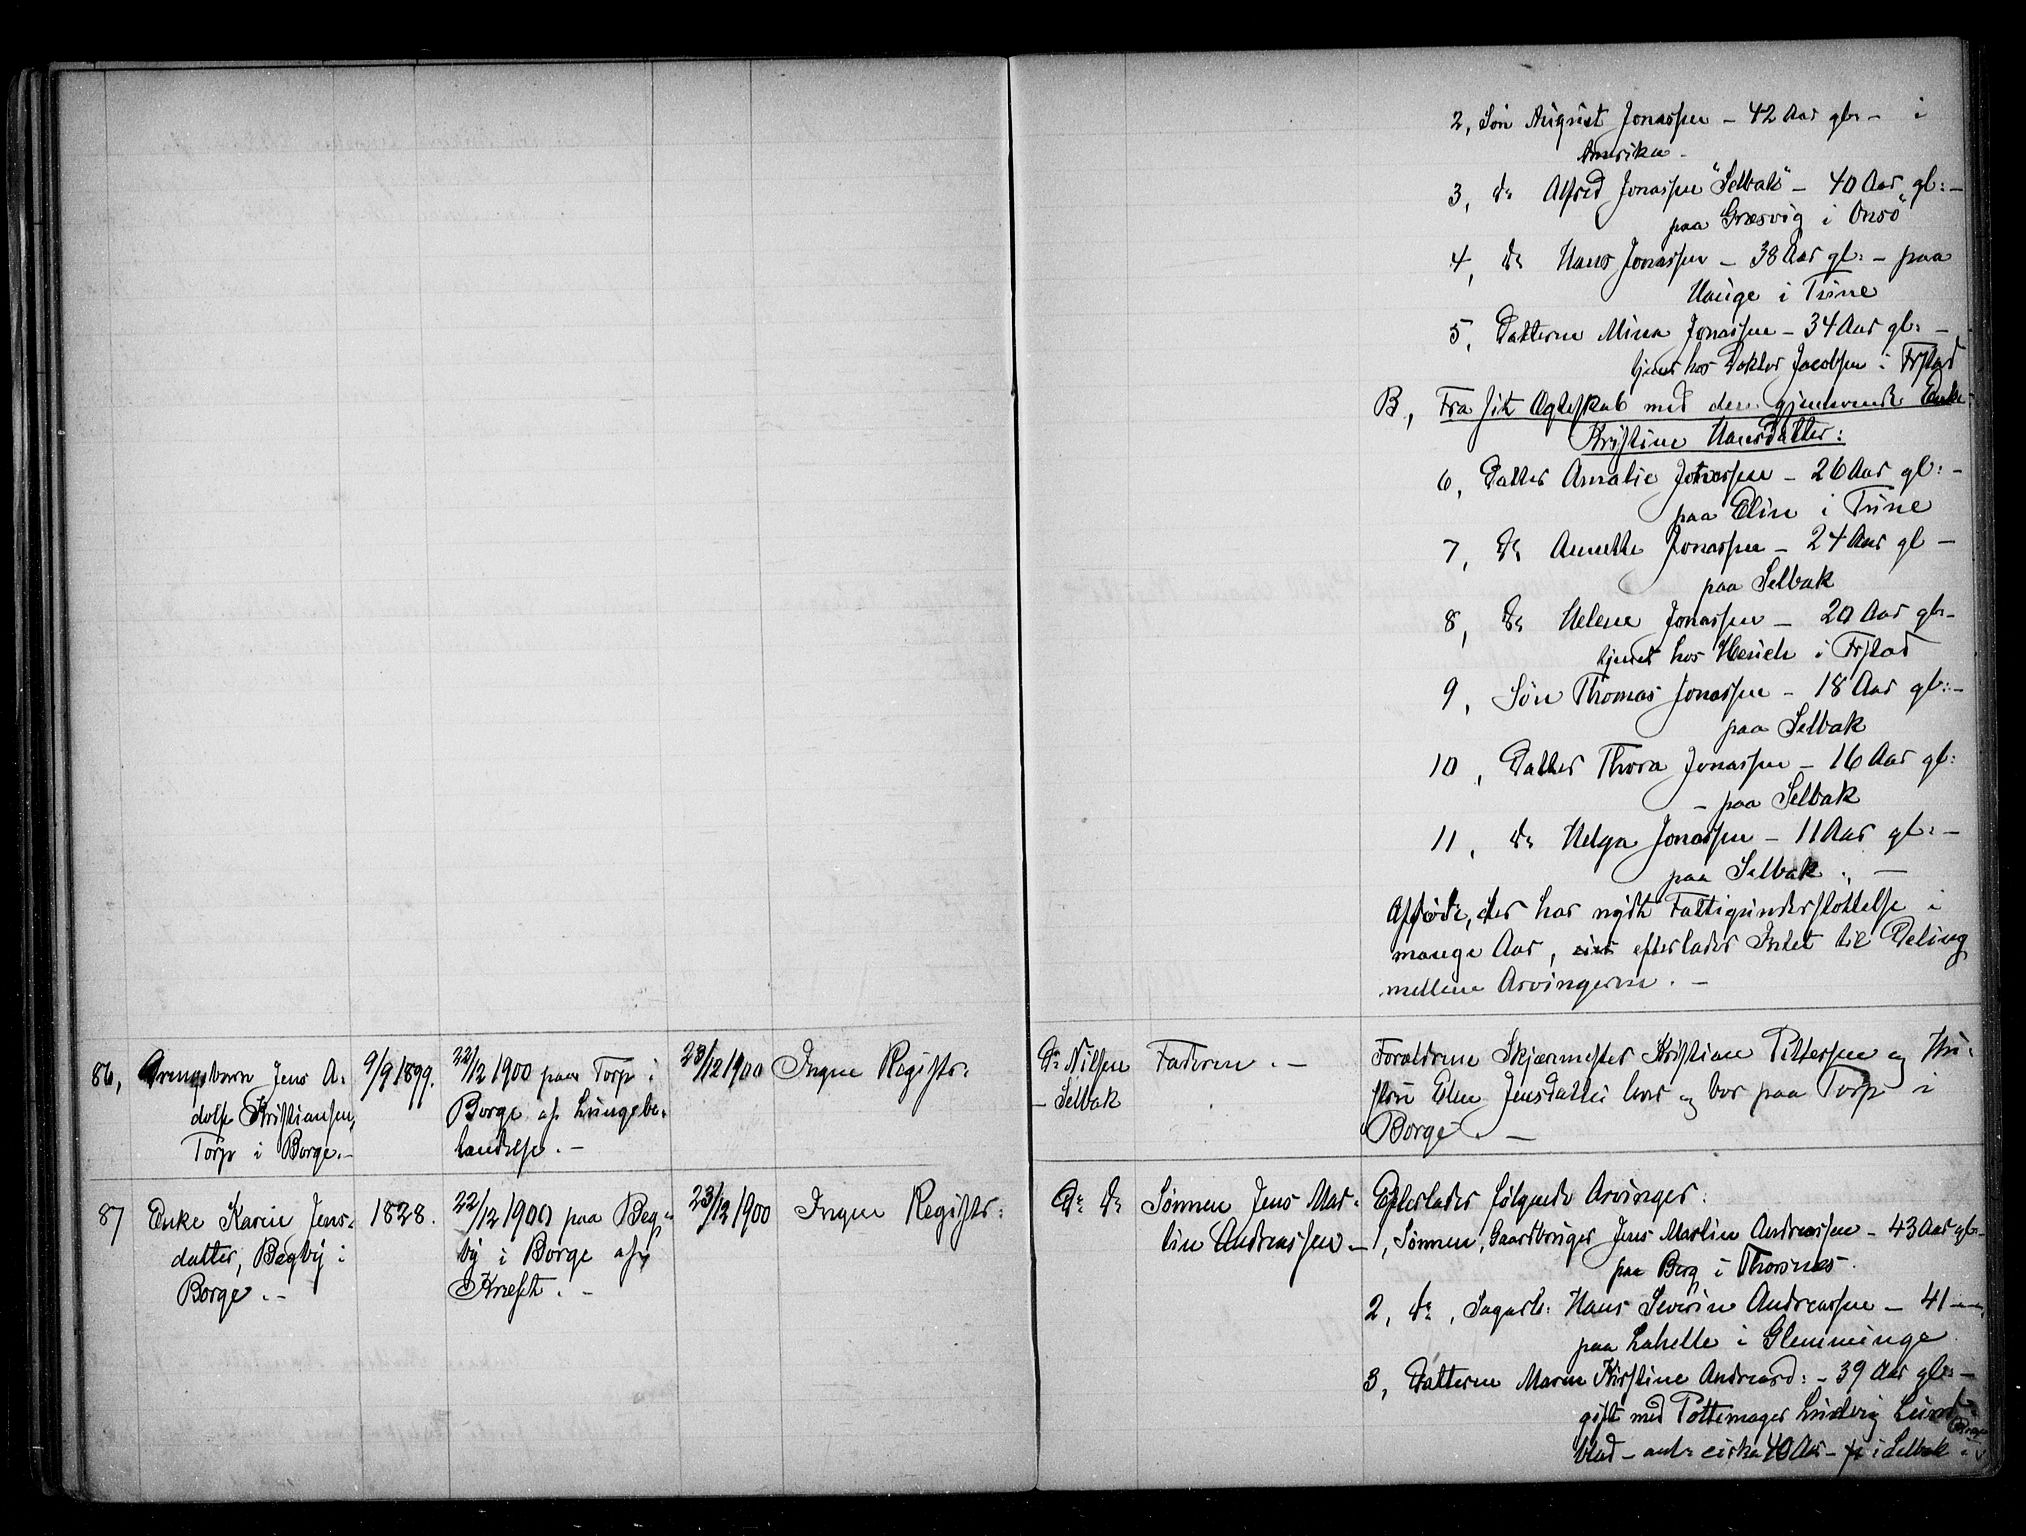 2, Søn August Jonassen – 42 Aar gl. – i
Amerika –
3, do Alfred Jonassen "Selbak" – 40 Aar gl: –
paa Græsvig i Onsø
4, do Hans Jonassen – 38 Aar gl: – paa
Hauge i Tune
5, Datteren Mina Jonassen – 34 Aar gl: –
tjener hos Doktor Jacobsen i Frstad
B, Fra sit Ægteskab med den gjenlevende Enke
Kristine Hansdatter:
6, Datter Amalie Jonassen – 26 Aar gl: –
paa Elin i Tune
7, do Annette Jonassen – 24 Aar gl –
paa Selbak
8, do Helene Jonassen – 20 Aar gl. –
tjener hos i Frstad
9, Søn Thomas Jonassen – 18 Aar gl: –
paa Selbak
10, Datter Thora Jonassen – 16 Aar gl:
– paa Selbak
11, do Helga Jonassen – 11 Aar gl: –
paa Selbak. –
Afdøde, der har nydt Fattigunderstøttelse i
mange Aar, efterlader Intet til Deling
mellem Arvingerne. –
86, Drengebarn Jens A-
dolf Kristiansen,
Torp i Borge. –
9/9 1899.
22/12 1900 paa Torp i
Borge af Lungebe-
tændelse. –
23/12 1900
Ingen Registr:
Do Nilsen
– Selbak
Faderen. –
Forældrene Skjærmester Kristian Pettersen og Hu-
stru Elen Jensdatter lever og bor paa Torp i
Borge. –
87 Enke Karen Jens-
datter, Begby i
Borge. –
1828.
22/12 1900 paa Beg-
by i Borge af
Kræft. –
23/12 1900
Ingen Registr:
Do do
Sønnen Jens Mar-
tin Andreassen –
Efterlader følgende Arvinger:
1, Sønnen, Gaardbruger Jens Martin Andreassen – 43 Aar gl. –
paa Berg i Thorsnes.
2, do, Sagarb: Hans Severin Andreassen – 41 –
paa Lahelle i Glemminge
3, Datteren Maren Kristine Andreasd: – 39 Aar gl: –
gift med Pottemager Ludvig Lund-
blad – ant. cirka 40 Aar – i Selbak i
Borge